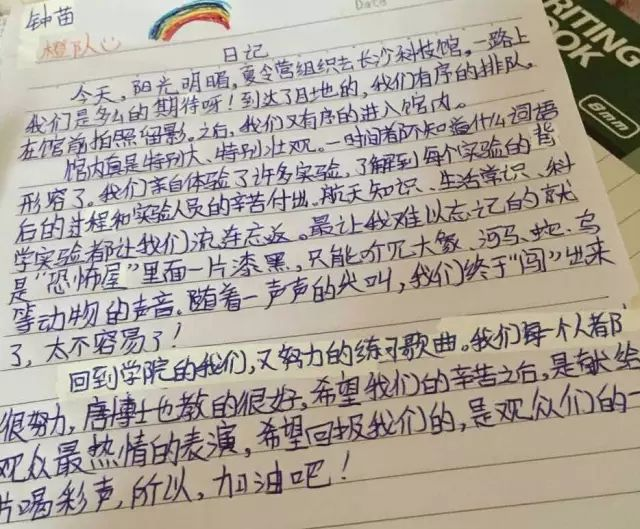 钟苗
Date
橙队
日记
今天，阳光明晴，夏令营组织去长沙科技馆，一路上
我们是多么的期待呀！到达了目地的，我们有序的排队。
在馆前拍照留影。之后，我们又有序的进入馆内。
馆内真是特别大、特别壮观。一时间都不知道什么词语
形容了。我们亲自体验了许多实验，了解到每个实验的背
后的过程和实验人员的辛苦付出。航天知识、生活常识、科
学实验都让我们流连忘返。最让我难以忘记的就
是“恐怖屋”里面一片漆黑，只能听见大象、河马、蛇、乌
等动物的声音。随着一声声的尖叫，我们终于“闯”出来
了，太不容易了！
回到学院的我们，又努力的练习歌曲。我们每个人都
很努力，唐博士也教的很好，希望我们的辛苦之后，是献给
观众最热情的表演，希望回报我们的，是观众们的一
片喝彩声，所以，加油吧！
RITING
OOK
8mm